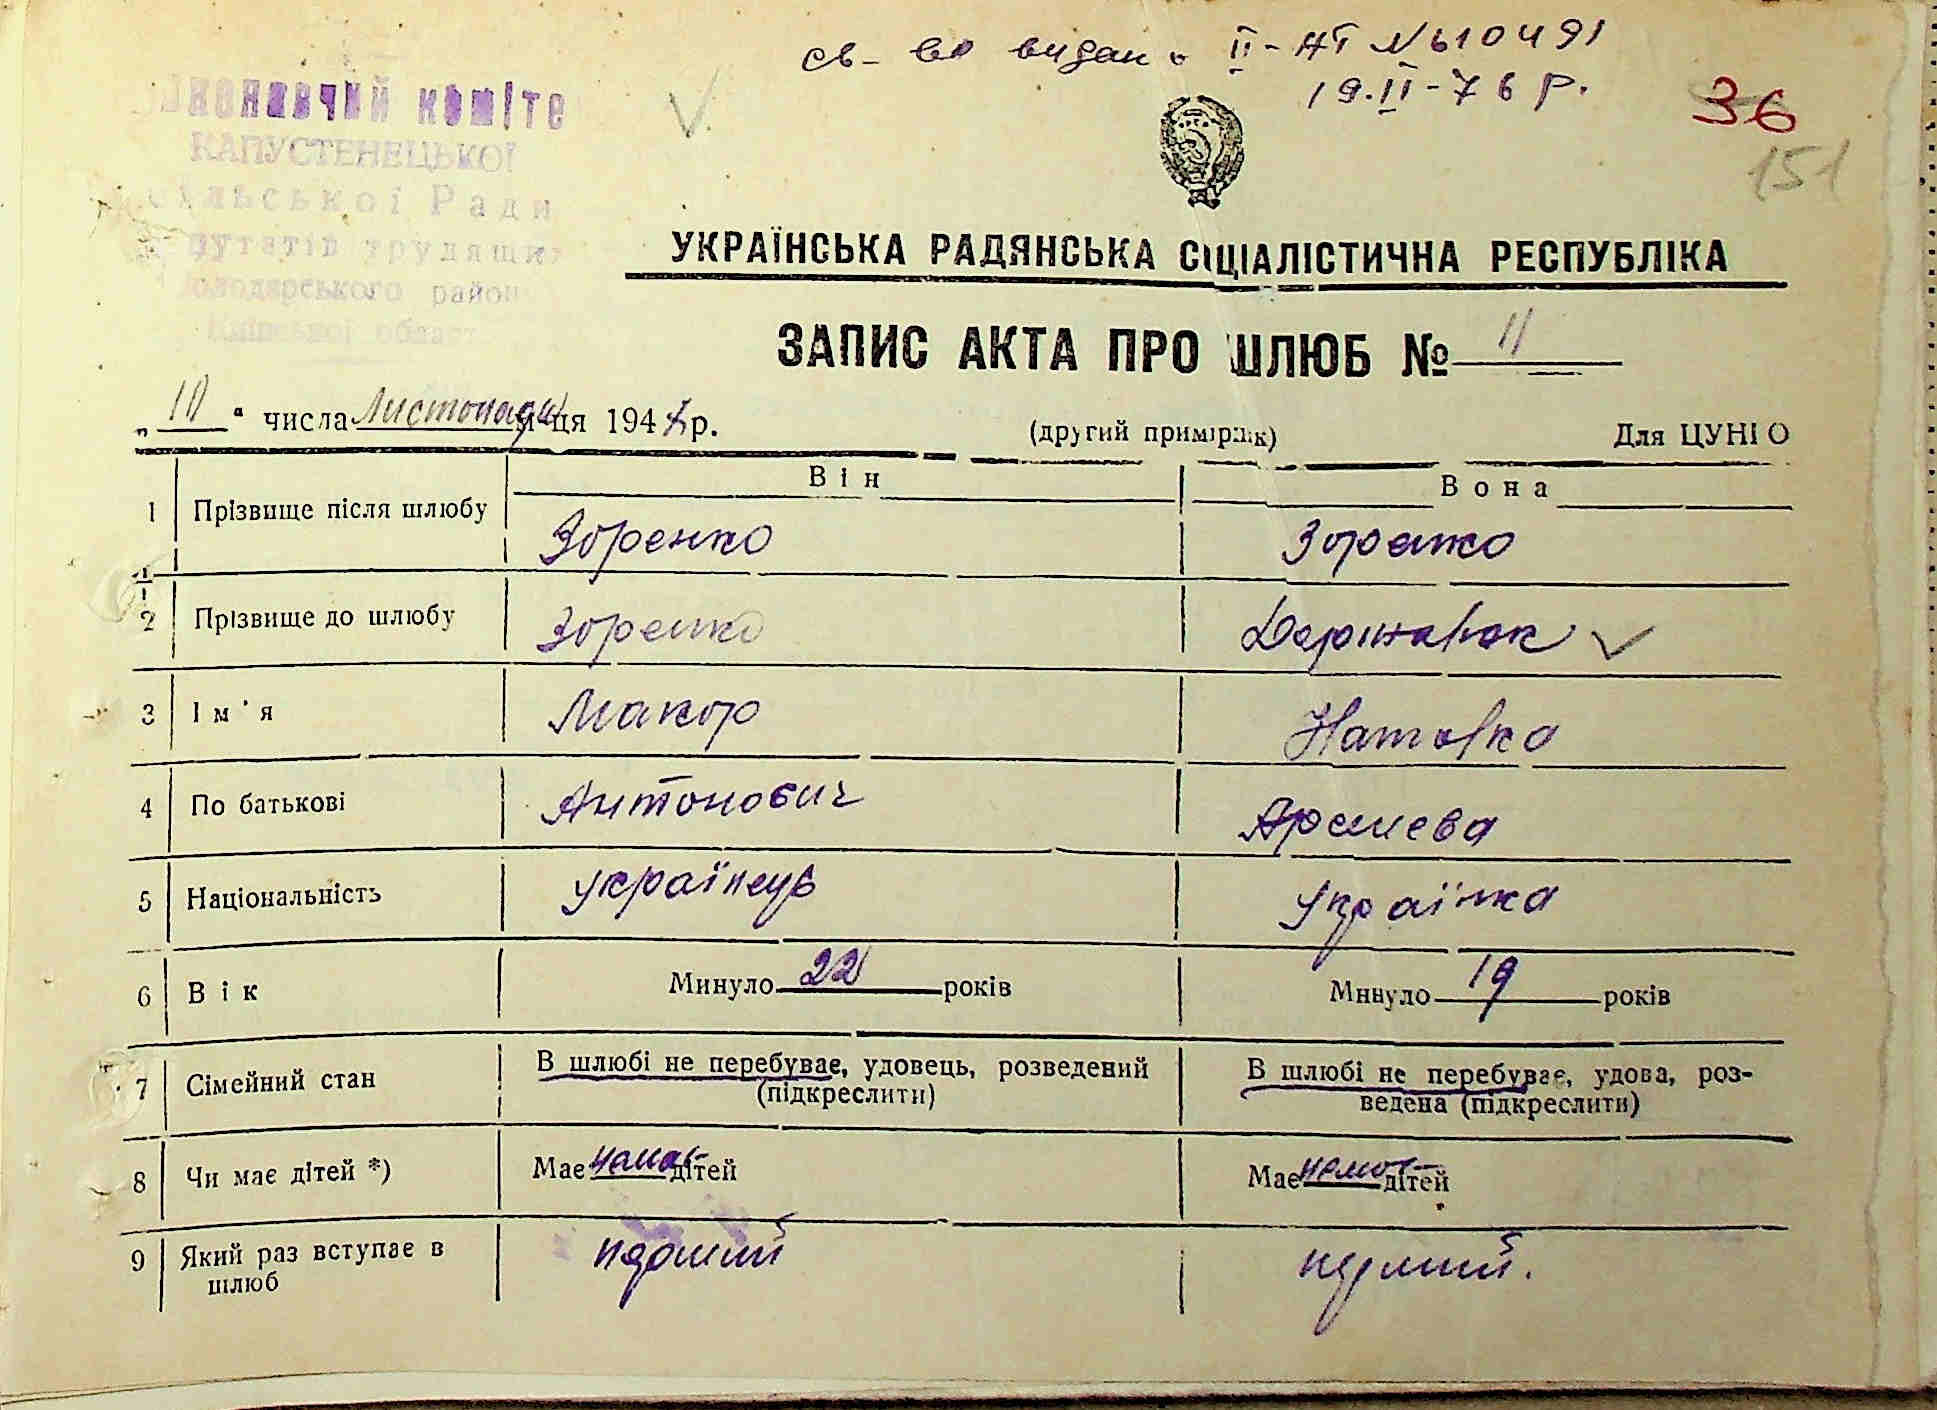 св-во видано II-АТ № 610491
19.II-76 р.
36
151
Виконавчий коміте
КАПУСТЕНЕЦЬКОЇ
сільської Ради
депутатів трудящих
Володарського район
Київської област
УКРАЇНСЬКА РАДЯНСЬКА СОЦІАЛІСТИЧНА РЕСПУБЛІКА
ЗАПИС АКТА ПРО ШЛЮБ № 11
„10“ числа Листопада м-ця 194 р.
(другий примірник)
Для ЦУНГО
Він
Вона
1 Прізвище після шлюбу Зоренко Зоренко
2 Прізвище до шлюбу Зоренко
3 Ім'я Макар Наталка
4 По батькові Антонович
5 Національність українць Українка
6 Вік Минуло 22 років Минуло 19 років
7 Сімейний стан В шлюбі не перебуває, удовець, розведений В шлюбі не перебуває, удова, роз-
(підкреслити) ведена (підкреслити)
8 Чи має дітей *) Має дітей Має немає дітей
9 Який раз вступає в перший перший.
шлюб